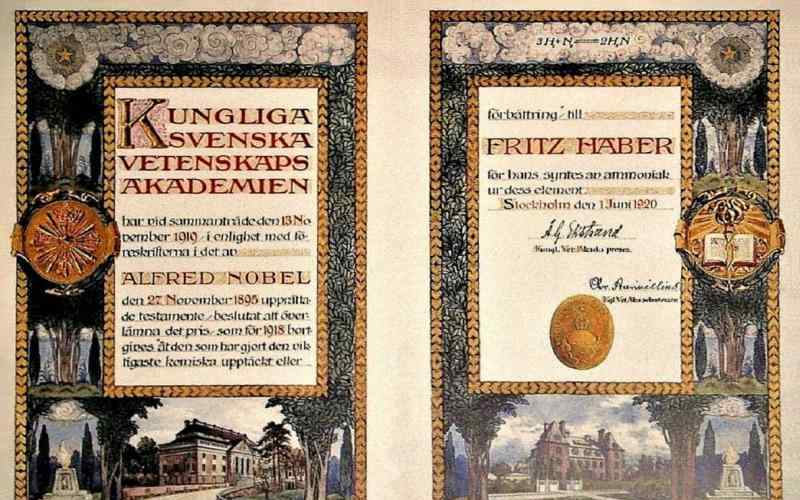 KUNGLIGA
SVENSKA
VETENSKAPS
AKADEMIEN
har vid sammanträde den 13 No
vember 1919 / i enlighet med fö-
reskrifterna i det av
ALFRED NOBEL
den 27 November 1895 upprätta-
de testamente / beslutat att över-
lämna det pris / som för 1918 bort-
gives "Åt den som har gjort den vik
tigaste kemiska upptäckt eller
3H₂+N₂=2H₃N
förbättring" till
FRITZ HABER
för hans syntes av ammoniak
ur dess element
Stockholm den 1 Juni 1920
Å G Ekstrand
Kungl. Vet. Akads preses.